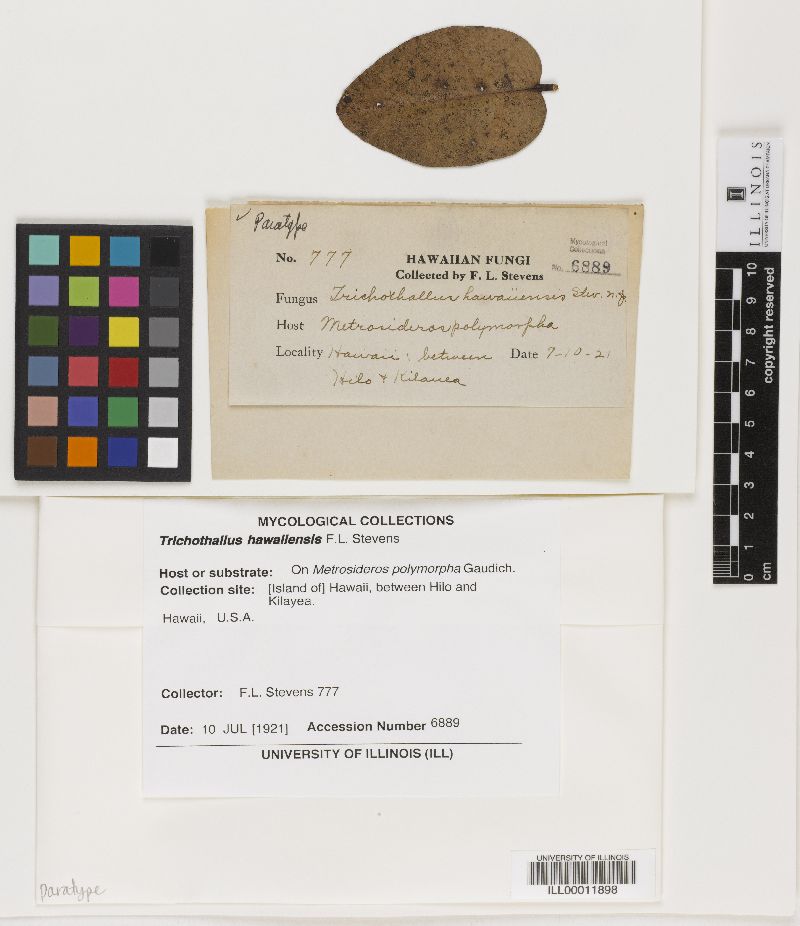 ✓ Paratype
No. 777
HAWAIIAN FUNGI
Collected by F. L. Stevens
Mycological
Collections
No. 6889
Fungus Trichothallus hawaiiensis Stev. n.g.
Host Metrosideros polymorpha
Locality Hawaii; between Date 7-10-21
Hilo + Kilauea
MYCOLOGICAL COLLECTIONS
Trichothallus hawaiiensis F.L. Stevens
Host or substrate: On Metrosideros polymorpha Gaudich.
Collection site: [Island of] Hawaii, between Hilo and
Kilayea.
Hawaii, U.S.A.
Collector: F.L. Stevens 777
Date: 10 JUL [1921] Accession Number 6889
UNIVERSITY OF ILLINOIS (ILL)
UNIVERSITY OF ILLINOIS
ILL00011898
Paratype
ILLINOIS
copyright reserved
10
9
8
7
6
5
4
3
2
1
0
cm